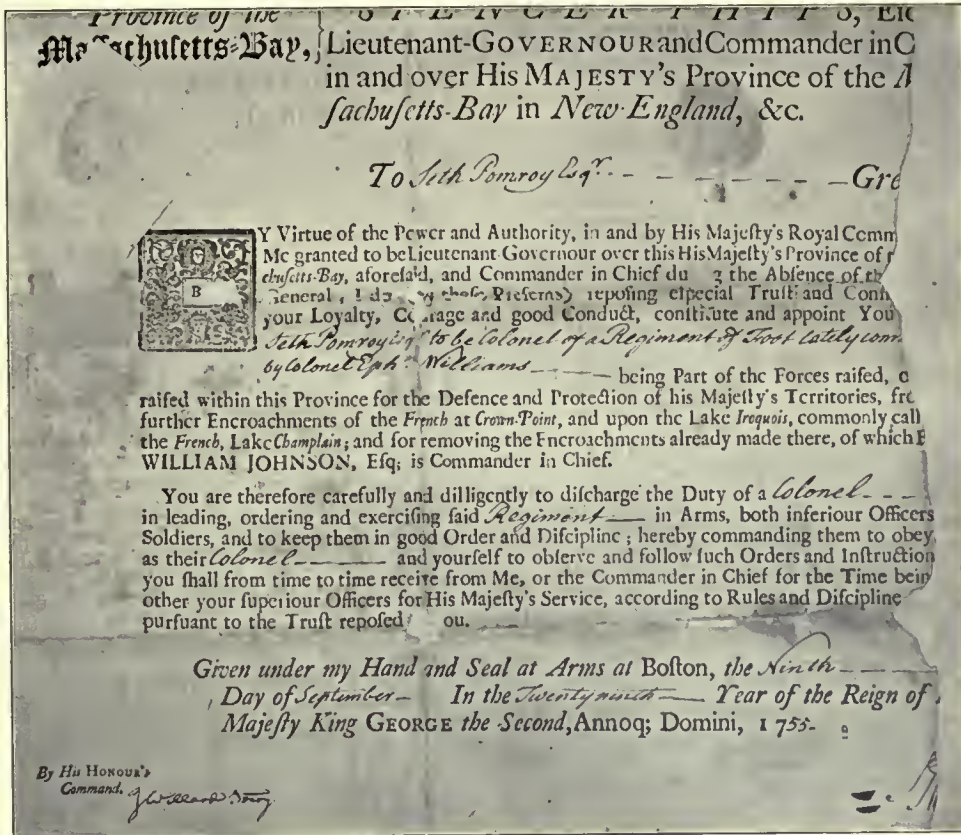 Province of the
Maſſachuſetts=Bay,
SPENCER PHIPS,
Lieutenant-GOVERNOUR and Commander in C
in and over His MAJESTY's Province of the
ſachuſetts-Bay in New-England, &c.
To Seth Pomroy Esqr. - - - - - - - - Gre
BY Virtue of the Power and Authority, in and by His Majeſty's Royal Comm
Me granted to be Lieutenant-Governour over this His Majeſty's Province of
chuſetts-Bay, aforeſaid, and Commander in Chief du g the Abſence of th
General, I do y theſe Preſents) repoſing eſpecial Truſt and Conf
your Loyalty, Co rage and good Conduct, conſtitute and appoint You
Seth Pomroy Esqr to be Colonel of a Regiment of Foot lately com
by Colonel Ephm. Williams - - - - being Part of the Forces raiſed, o
raiſed within this Province for the Defence and Protection of his Majeſty's Territories, fro
further Encroachments of the French at Crown-Point, and upon the Lake Iroquois, commonly call
the French, Lake Champlain; and for removing the Encroachments already made there, of which
WILLIAM JOHNSON, Eſq; is Commander in Chief.
You are therefore carefully and dilligently to diſcharge the Duty of a Colonel - - -
in leading, ordering and exerciſing ſaid Regiment — in Arms, both inferiour Officers
Soldiers, and to keep them in good Order and Diſcipline; hereby commanding them to obey
as their Colonel - - - - and yourſelf to obſerve and follow ſuch Orders and Inſtruction
you ſhall from time to time receive from Me, or the Commander in Chief for the Time bein
other your ſuperiour Officers for His Majeſty's Service, according to Rules and Diſcipline
purſuant to the Truſt repoſed ou.
Given under my Hand and Seal at Arms at Boſton, the Ninth - - -
Day of September - In the Twenty ninth — Year of the Reign of
Majeſty King GEORGE the Second, Annoq; Domini, 1755.
By His HONOUR's
Command.
J Willard Secry.